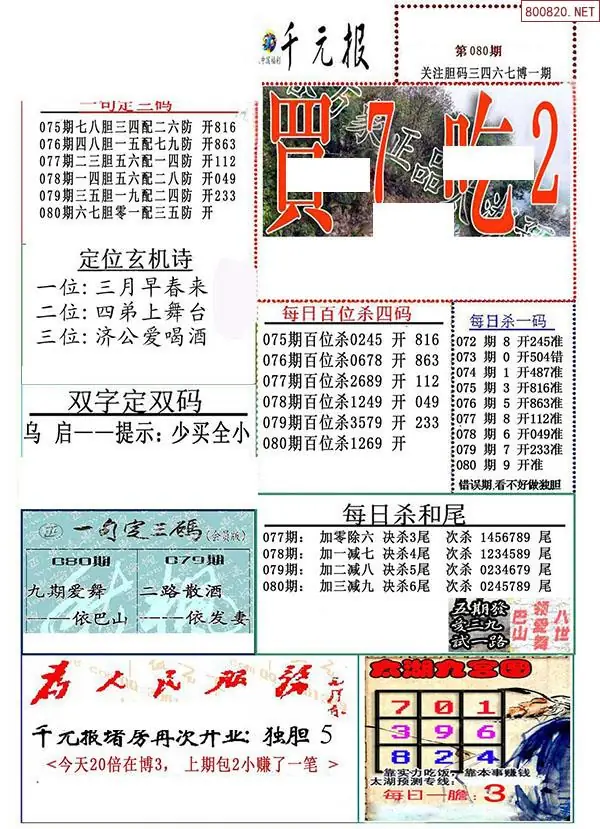 800820.NET
千元报
中国福利
第080期
关注胆码三四六七博一期
一句定三码
075期七八胆三四配二六防 开816
076期四八胆一五配七九防 开863
077期二三胆五六配一四防 开112
078期一四胆五六配二八防 开049
079期三五胆一九配二四防 开233
080期六七胆零一配三五防 开
買7吃2
定位玄机诗
一位: 三月早春来
二位: 四弟上舞台
三位: 济公爱喝酒
每日百位杀四码
075期百位杀0245 开 816
076期百位杀0678 开 863
077期百位杀2689 开 112
078期百位杀1249 开 049
079期百位杀3579 开 233
080期百位杀1269 开
每日杀一码
072 期 8 开245准
073 期 0 开504错
074 期 1 开487准
075 期 3 开816准
076 期 5 开863准
077 期 8 开112准
078 期 6 开049准
079 期 7 开233准
080 期 9 开准
错误期,看不好做独胆
双字定双码
乌 启——提示: 少买全小
每日杀和尾
077期: 加零除六 决杀3尾 次杀 1456789 尾
078期: 加一减七 决杀4尾 次杀 1234589 尾
079期: 加二减八 决杀5尾 次杀 0234679 尾
080期: 加三减九 决杀6尾 次杀 0245789 尾
一句定三碼(会员版)
080期
九期爱舞
——依巴山
079期
二路散酒
——依发妻
五期發
亥三九
试一路
巴山
领爱舞
八世
为人民服务
千元报堵房再次开业: 独胆 5
<今天20倍在博3, 上期包2小赚了一笔 >
太湖九宫图
7 0 1
3 9 6
8 2 4
靠实力吃饭,靠本事赚钱
太湖预测专线:
每日一胆: 3